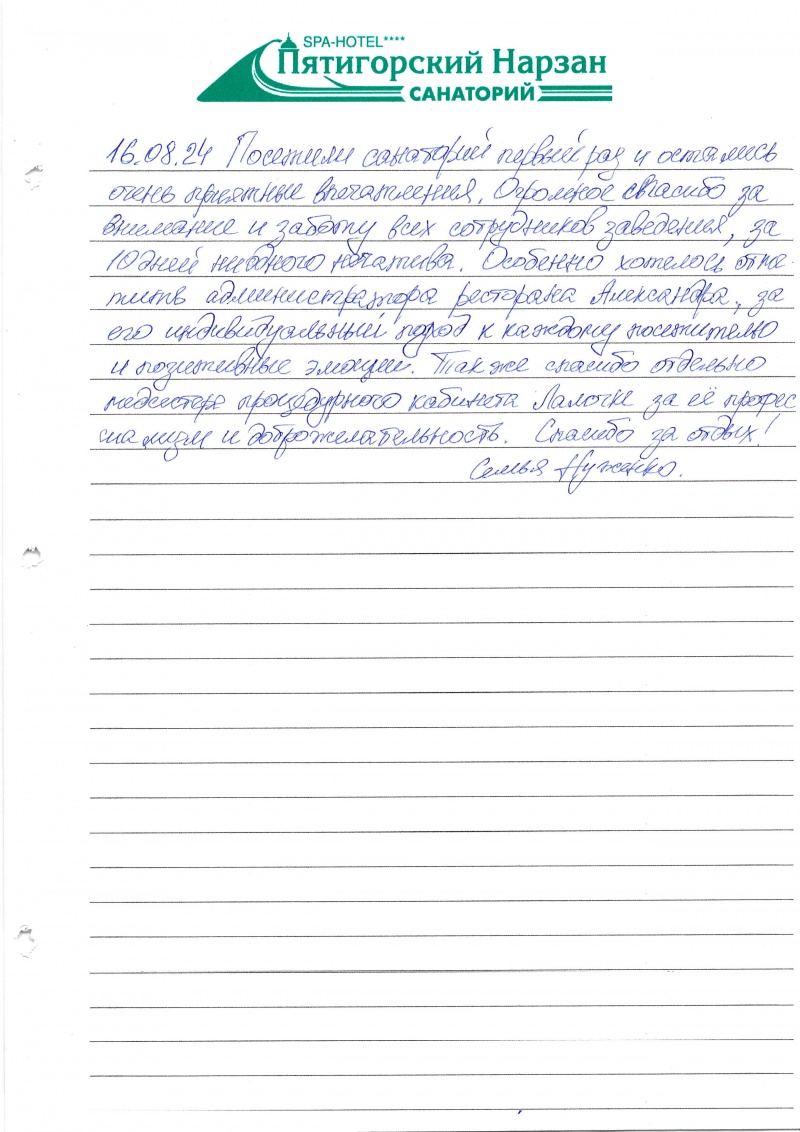 SPA-HOTEL****
Пятигорский Нарзан
САНАТОРИЙ
16.08.24 Посетили санаторий первый раз и остались
очень приятные впечатления. Огромное спасибо за
внимание и заботу всех сотрудников заведения, за
10 дней ни одного негатива. Особенно хотелось отме-
тить администратора ресторана Александра, за
его индивидуальный подход к каждому посетителю
и позитивные эмоции. Также спасибо отдельно
медсестре процедурного кабинета за её профес
и доброжелательность. Спасибо за отдых!
Семья Нуженко.